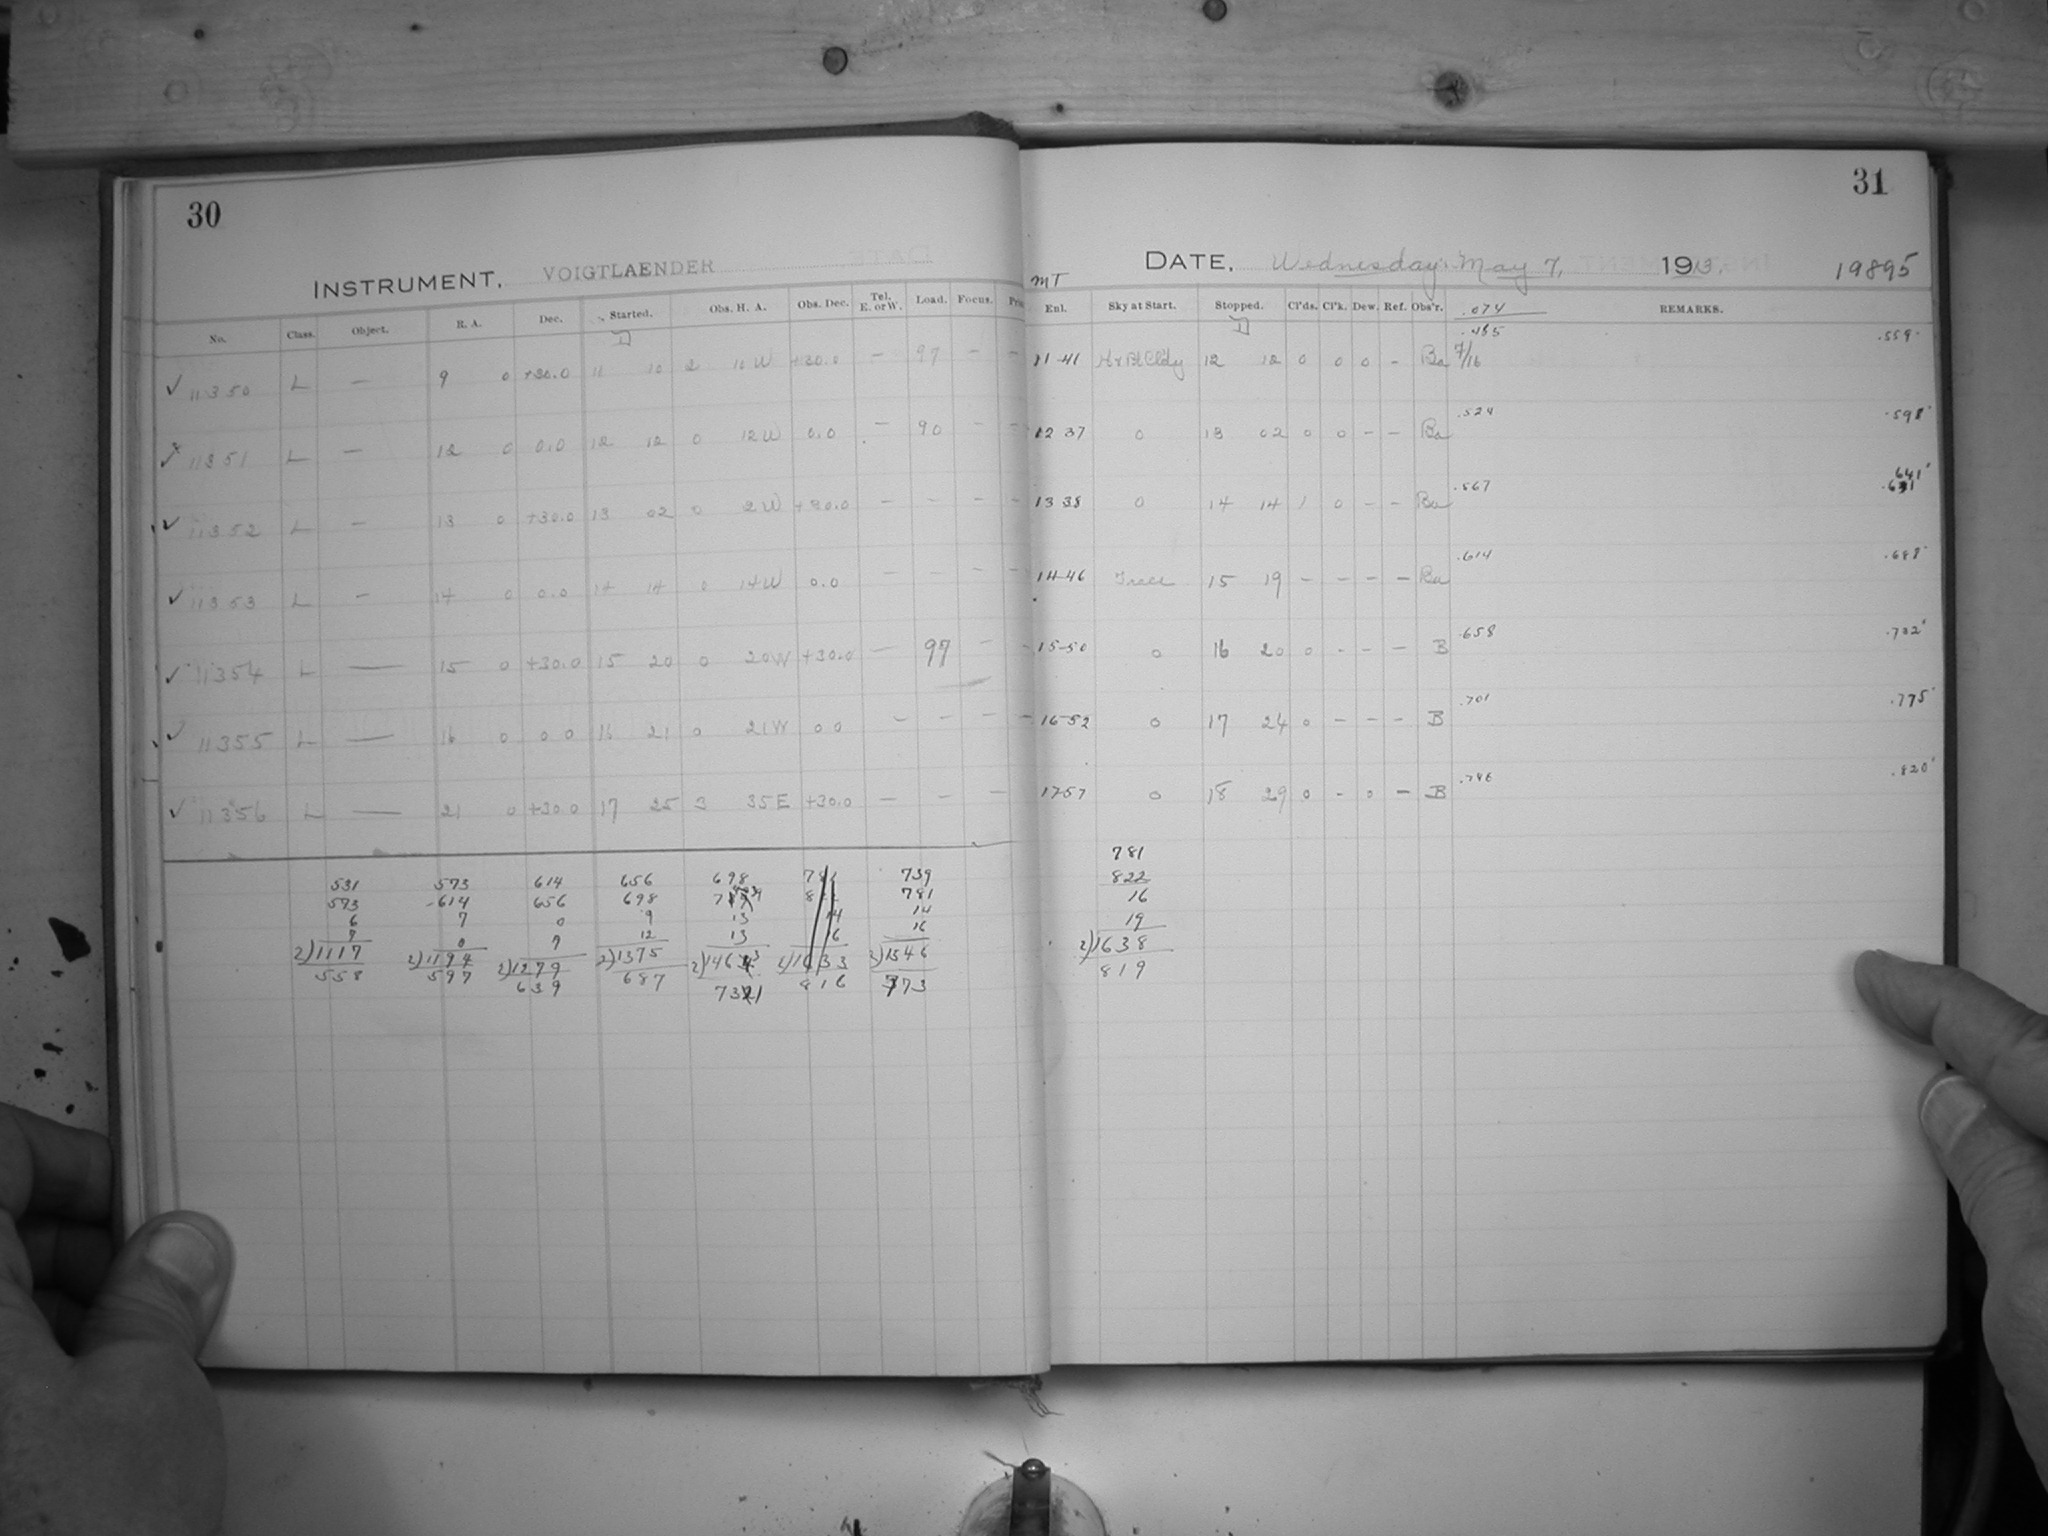 30
INSTRUMENT, VOIGTLAENDER
No. Class. Object. R. A. Dec. Started. Obs. H. A. Obs. Dec. Tel. E. or W. Load. Focus.
✓ 11350 L — 9 0 +30.0 11 10 2 10 W +30.0 — 97 — —
11351 L — 12 0 0.0 12 12 0 12 W 0.0 — 90 — —
✓ 11352 L — 13 0 +30.0 13 02 0 2 W +30.0 — — — —
✓ 11353 L — 14 0 0.0 14 14 0 14 W 0.0 — — — —
✓ 11354 L — 15 0 +30.0 15 20 0 20 W +30.0 — 97 — —
✓ 11355 L — 16 0 0 0 16 21 0 21 W 0 0 — — — —
✓ 11356 L — 21 0 +30.0 17 25 3 35 E +30.0 — — —
531 573 614 656 698 739
573 614 656 698 781
6 7 0 9 13 14
7 0 7 12 13 16
2)1117 2)1194 2)1279 2)1375 2)1546
558 597 639 687 816 773
31
DATE, Wednesday, May 7, 1913. 19895
MT
Enl. Sky at Start. Stopped. Cl'ds. Cl'k. Dew. Ref. Obs'r. .074 REMARKS.
.485 .559
11-41 12 12 0 0 0 - Ba 7/16
.524 .598
12 37 0 13 02 0 0 - - Ba
.567 .641
.631
13 38 0 14 14 1 0 - - Ba
.614 .688
14-46 15 19 - - - - Ba
.658 .732
15-50 0 16 20 0 - - - B
.701 .775
16-52 0 17 24 0 - - - B
.746 .820
17-57 0 18 29 0 - 0 - B
781
822
16
19
2)1638
819